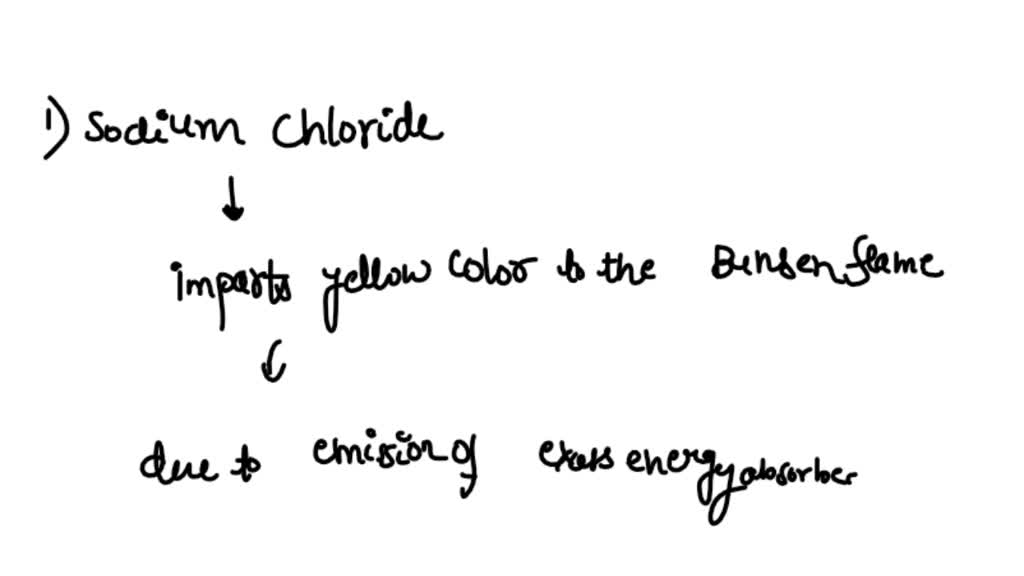 1) Sodium Chloride
imparts yellow color to the Bunsen flame
due to emission of excess energy absorber